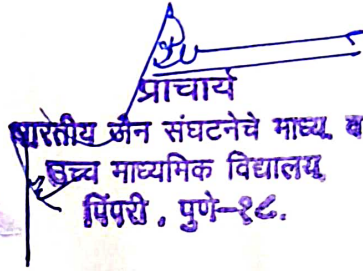 प्राचार्य
भारतीय जैन संघटनेचे माध्य. व
उच्च माध्यमिक विद्यालय,
पिंपरी, पुणे-१८.